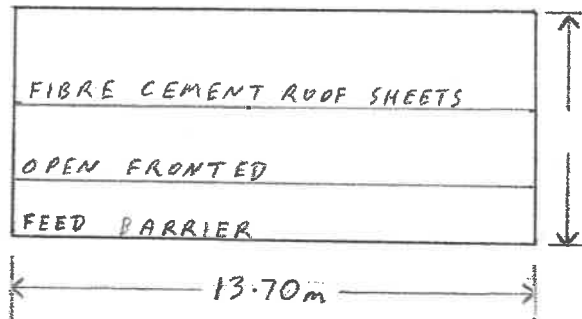 FIBRE CEMENT ROOF SHEETS
OPEN FRONTED
FEED BARRIER
13.70m